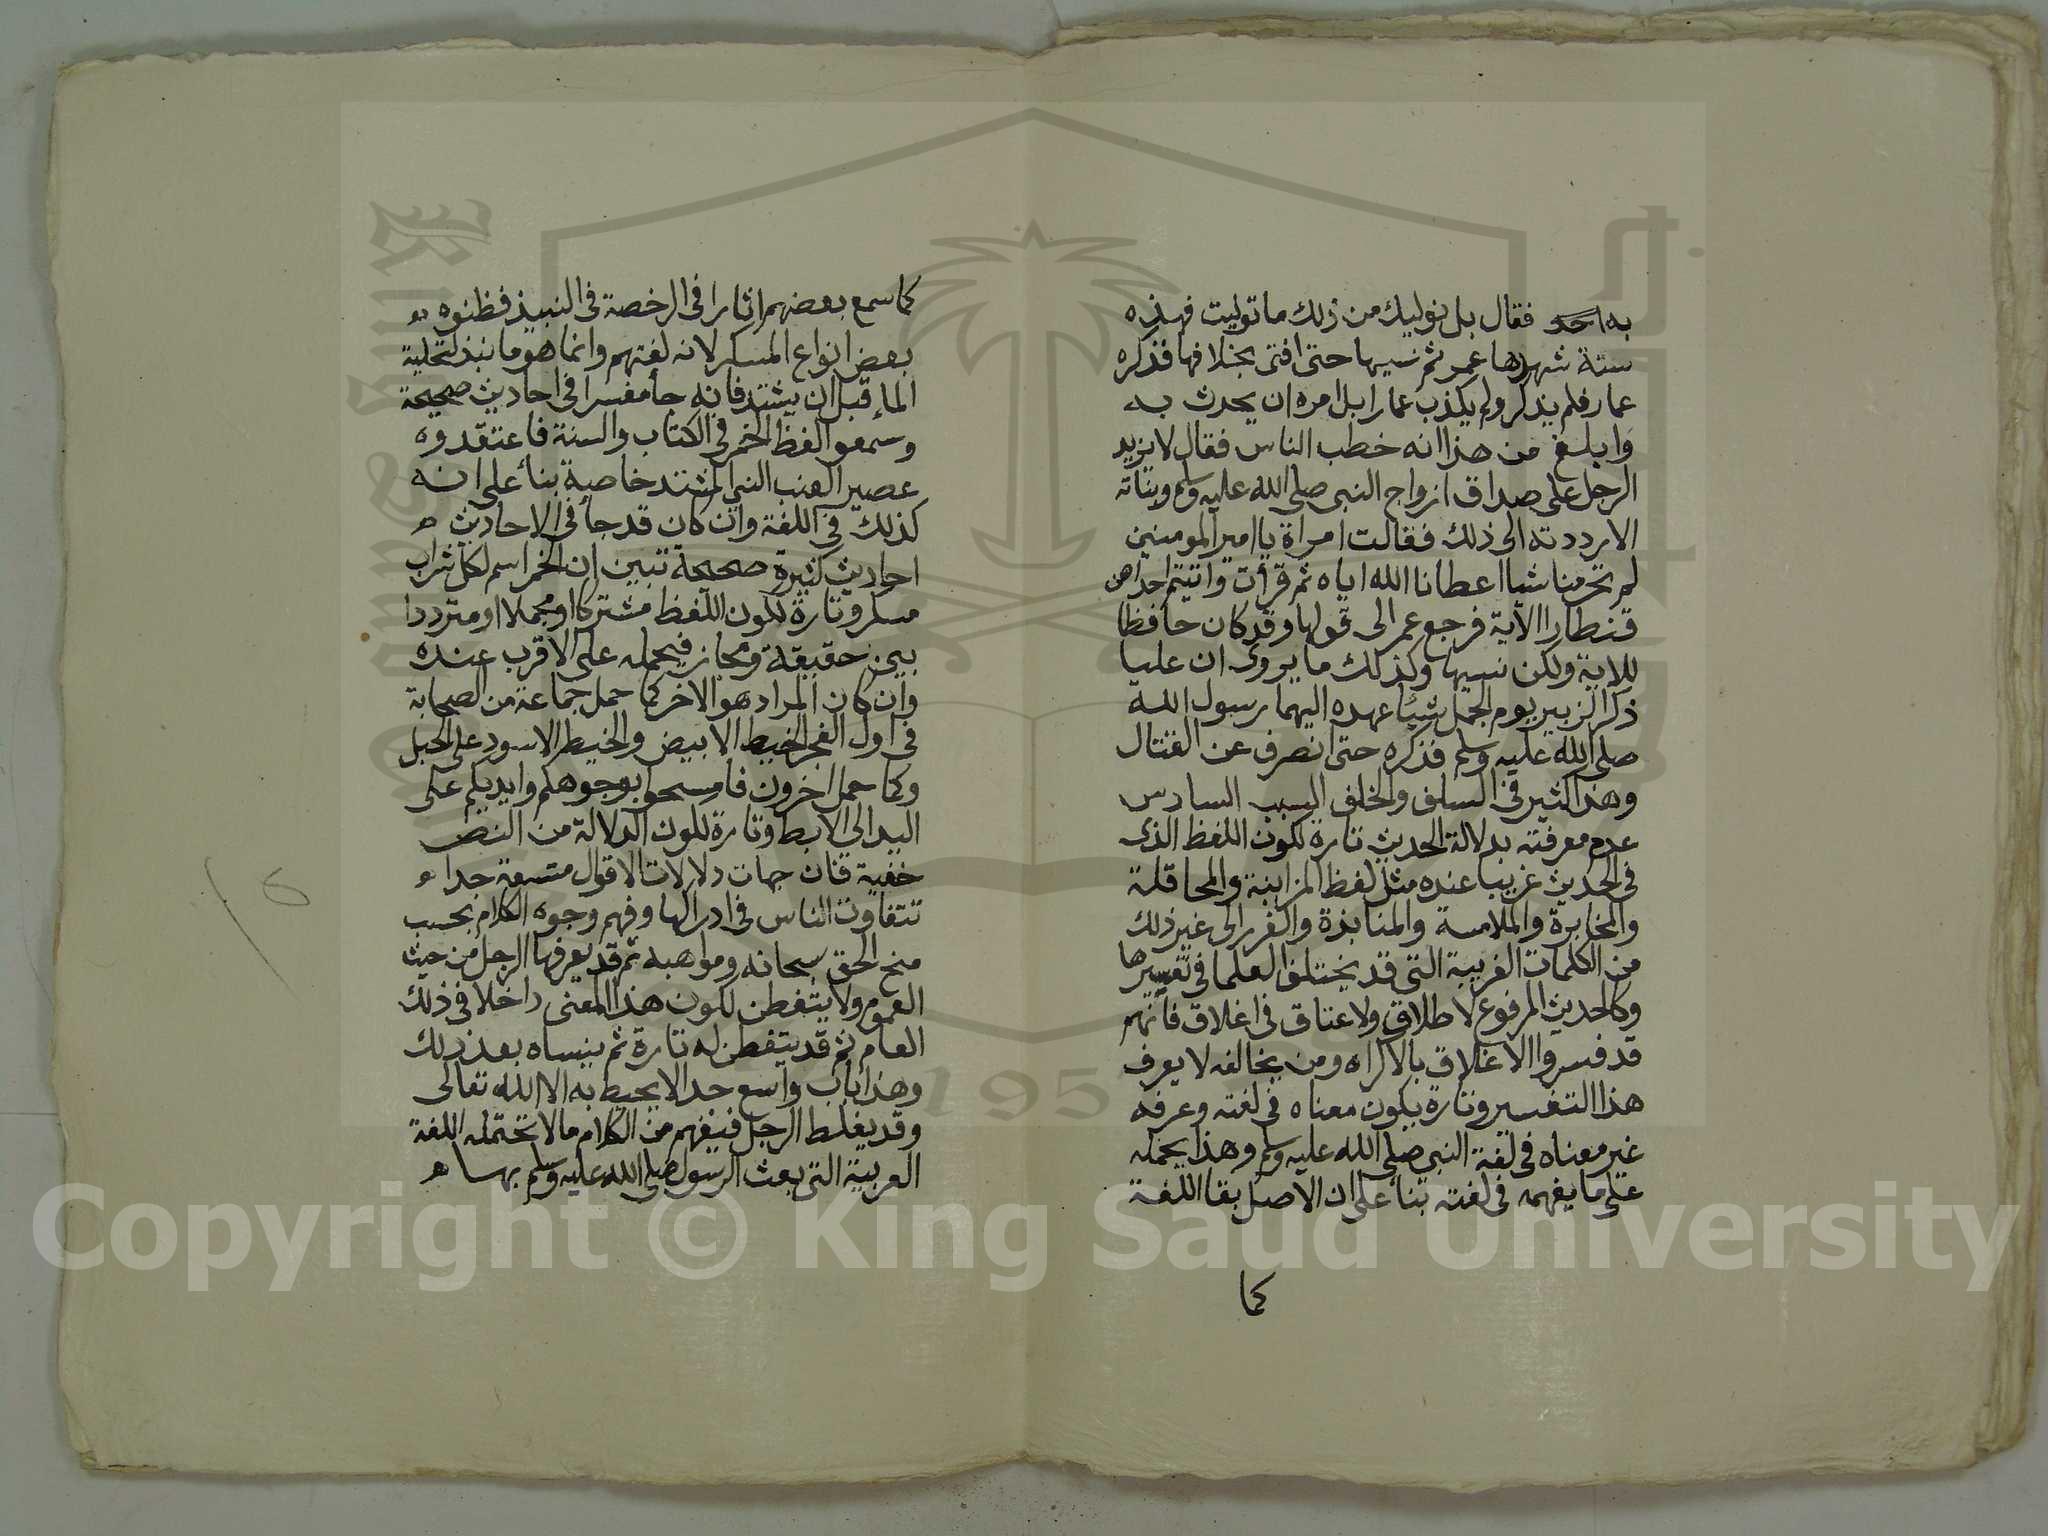 به احد فقال بل نوليك من ذلك ما توليت فهذه
ستة شهدها عمر ثم نسيها حتى افتى بخلافها فذكره
عمار فلم يذكر ولم يكذب عمارا بل امره ان يحدث به
وابلغ من هذا انه خطب الناس فقال لا يزيد
الرجل على صداق ازواج النبي صلى الله عليه وسلم وبناته
الا رددته الى ذلك فقالت امراة يا امير المومنين
لم تحرمنا شيا اعطانا الله اياه ثم قرأت واتيتم احداهن
قنطارا الآية فرجع عمر الى قولها وقد كان حافظا
للاية ولكن نسيها وكذلك ما يروى ان عليا
ذكر الزبير يوم الجمل شيئا عهده اليهما رسول الله
صلى الله عليه وسلم فذكره حتى انصرف عن القتال
وهذا كثير في السلف والخلف السبب السادس
عدم معرفته بدلالة الحديث تارة لكون اللفظ الذى
في الحديث غريبا عنده مثل لفظ المزابنة والمحاقلة
والمخابرة والملامسة والمنابذة والغرر الى غير ذلك
من الكلمات الغريبة التي قد يختلف العلما في تفسيرها
وكالحديث المرفوع لا طلاق ولا عتاق في اغلاق فانهم
قد فسروا الاغلاق بالاكراه ومن يخالفه لا يعرف
هذا التفسير وتارة يكون معناه في لغته وعرفه
غير معناه في لغة النبي صلى الله عليه وسلم وهذا يحمله
على ما يفهمه في لغته بنأ على ان الاصل بقا اللغة
كما
كما سمع بعضهم اثارا في الرخصة في النبيذ فظنوه
بعض انواع المسكر لانه لغتهم وانما هو ما ينبذ لتحلية
المأ قبل ان يشتد فانه جأ مفسرا في احاديث صحيحة
وسمعوا لفظ الخمر في الكتاب والسنة فاعتقدوه
عصير العنب النيي المشتد خاصة بنأ على انه
كذلك في اللغة وان كان قد جأ في الاحاديث
احاديث كثيرة صحيحة تبين ان الخمر اسم لكل شراب
مسكر وتارة لكون اللفظ مشتركا او مجملا او مترددا
بين حقيقة ومجاز فيحمله على الاقرب عنده
وان كان المراد هو الاخر كما حمل جماعة من الصحابة
في اول الفجر الخيط الابيض والخيط الاسود على الحبل
وكما حمل اخرون فامسحوا بوجوهكم وايديكم على
اليد الى الابط وتارة لكون الدلالة من النص
خفية فان جهات دلالات الاقوال متسعة جدا
تتفاوت الناس في ادراكها وفهم وجوه الكلام بحسب
منح الحق سبحانه ومواهبه ثم قد يعرفها الرجل من حيث
العموم ولا يتفطن لكون هذا المعنى داخلا في ذلك
العام ثم قد يتفطن له تارة ثم ينساه بعد ذلك
وهذا باب واسع جدا لا يحيط به الا الله تعالى
وقد يغلط الرجل فيفهم من الكلام ما لا تحتمله اللغة
العربية التي بعث الرسول صلى الله عليه وسلم بها
Copyright © King Saud University
1957